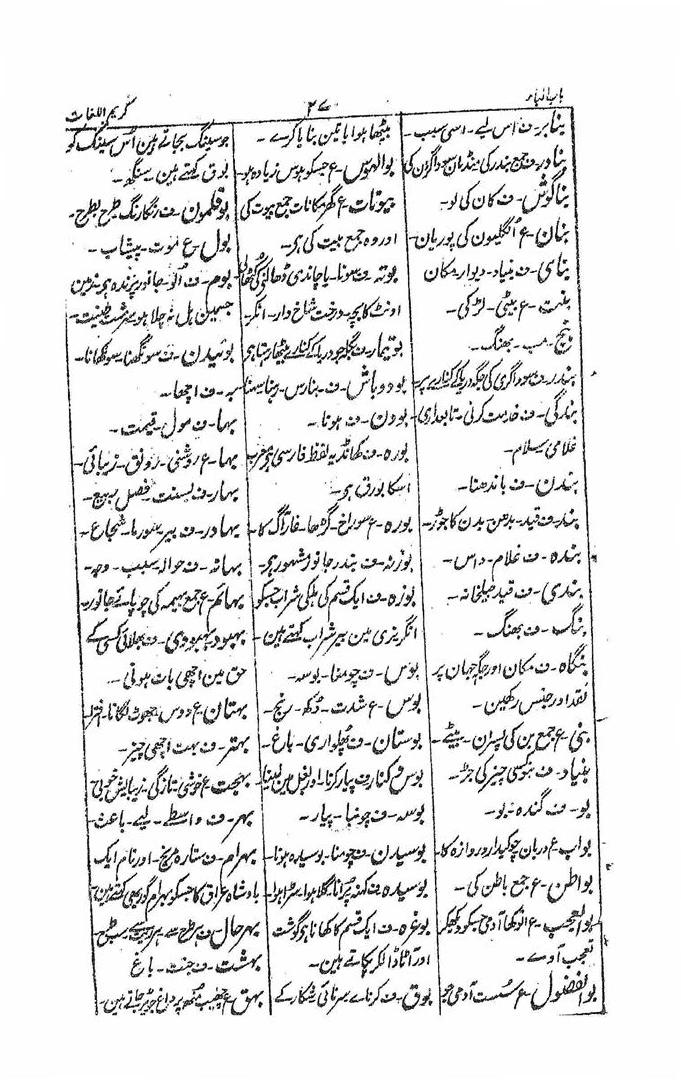 باب الباء
۲۷
کریم اللغات
بنابر۔ ف اس لیے۔ اسی سبب۔
بنادر۔ ف جمع بندر کی بندیان سوداگرون کی
بناگوش۔ ف کان کی لو۔
بنان۔ ع اُنگلیون کی پوریان۔
بنای۔ ف بنیاد۔ دیوار مکان
بنت۔ ع بیٹی۔ لڑکی۔
بنج۔ مب۔ بھنگ۔
بندر۔ ف سوداگری کی جگہ دریا کے کنارے پر
بندگی۔ ف خدمت کرنی۔ تابعداری
غلامی سلام۔
بندن۔ ف باندھنا۔
بند۔ ف قید۔ بدھن بدن کا جوڑ۔
بندہ۔ ف غلام۔ داس۔
بندی۔ ف قید جیلخانہ۔
بنگ۔ ف بھنگ۔
بنگاہ۔ ف مکان اور جگہ جہان پر
نقد اور جنس رکھین۔
بنی۔ ع جمع بن کی پسران۔ بیٹے۔
بنیاد۔ ف ہر کسی چیز کی جڑ۔
بو۔ ف گندہ۔ بو۔
بواب۔ ع دربان چوکیدار دروازہ کا۔
بواطن۔ ع جمع باطن کی۔
بوالعجب۔ ع انوکھا آدمی جسکو دیکھکر
تعجب آوے۔
بوالفضول۔ ع سُست آدمی جو
بیٹھا ہوا باتین بنایا کرے۔
بوالہوس۔ ع جسکو ہوس زیادہ ہو۔
بیوتات۔ ع گھر مکانات جمع بیوت کی
اور وہ جمع بیت کی ہے۔
بوتہ۔ ف سونا۔ یا چاندی ڈھالنے کی گٹھالی
اونٹ کا بچہ۔ درخت شاخ دار۔
بوتیمار۔ ف بگلا جو دریا کے کنارے بیٹھا رہتا ہے
بودوباش۔ ف بنارس۔ رہنا سہنا
بودن۔ ف ہونا۔
بورہ۔ ف کھانڈ یہ لفظ فارسی ہے معرب
اسکا بورق ہے۔
بورہ۔ ع سوراخ۔ گڑھا۔
بوزنہ۔ ف بندر جانور مشہور ہے۔
بوزہ۔ ف ایک قسم کی ہلکی شراب جسکو
انگریزی مین بیر شراب کہتے ہین۔
بوس۔ ف چومنا۔ بوسہ۔
بوس۔ ع شدت۔ دُکھ۔ رنج۔
بوستان۔ ف پھلواری۔ باغ۔
بوس و کنار ف پیار کرنا۔ اور بغل مین لینا
بوسہ۔ ف چومنا۔ پیار۔
بوسیدن۔ ف چومنا۔ بوسیدہ ہونا۔
بوسیدہ۔ ف کہنہ پُرانا۔ گلا ہوا۔ سڑا ہوا۔
بوغرہ۔ ف ایک قسم کا کھانا ہے گوشت
اور آٹا ڈالکر پکاتے ہین۔
بوق۔ ف کرناے سرنائی شکار کے
جو سینگ بجاتے ہین اُس سینگ کو
بوق کہتے ہین۔ سنگھ۔
بوقلمون۔ ف رنگارنگ طرح بطرح۔
بول۔ ع موت۔ پیشاب۔
بوم۔ ف اُلو۔ جانور پرندہ ہے۔ زمین
جسمین ہل نہ چلا ہو۔ سرشت طینت۔
بوئیدن۔ ف سونگھنا سونگھانا۔
بہ۔ ف اچھا۔
بہا۔ ف مول۔ قیمت۔
بہا۔ ع روشنی۔ رونق۔ زیبائی۔
بہار۔ ف بسنت۔ فصل ربیع۔
بہادر۔ ف بیر سورما۔ شجاع۔
بہانہ۔ ف حوالہ سبب۔ وجہ۔
بہائم۔ ع جمع بہیمہ کی چوپائے جانور۔
بہبود بہبودی۔ ف بھلائی کسی کے
حق مین اچھی بات ہونی۔
بہتان۔ ع دوس جھوٹ لگانا۔ افترا
بہتر۔ ف بہت اچھی چیز۔
بہجت۔ ع خوشی۔ تازگی۔ زیبائش خوبی
بہر۔ ف واسطے۔ لیے۔ باعث۔
بہرام۔ ف ستارہ مریخ۔ اور نام ایک
بادشاہ عراق کا جسکو بہرام گور بھی کہتے ہین
بہرحال۔ ف
بہشت۔ ف جنت۔ باغ
بہق۔ ع چھیپ منھ پر داغ جو پڑ جاتے ہین۔